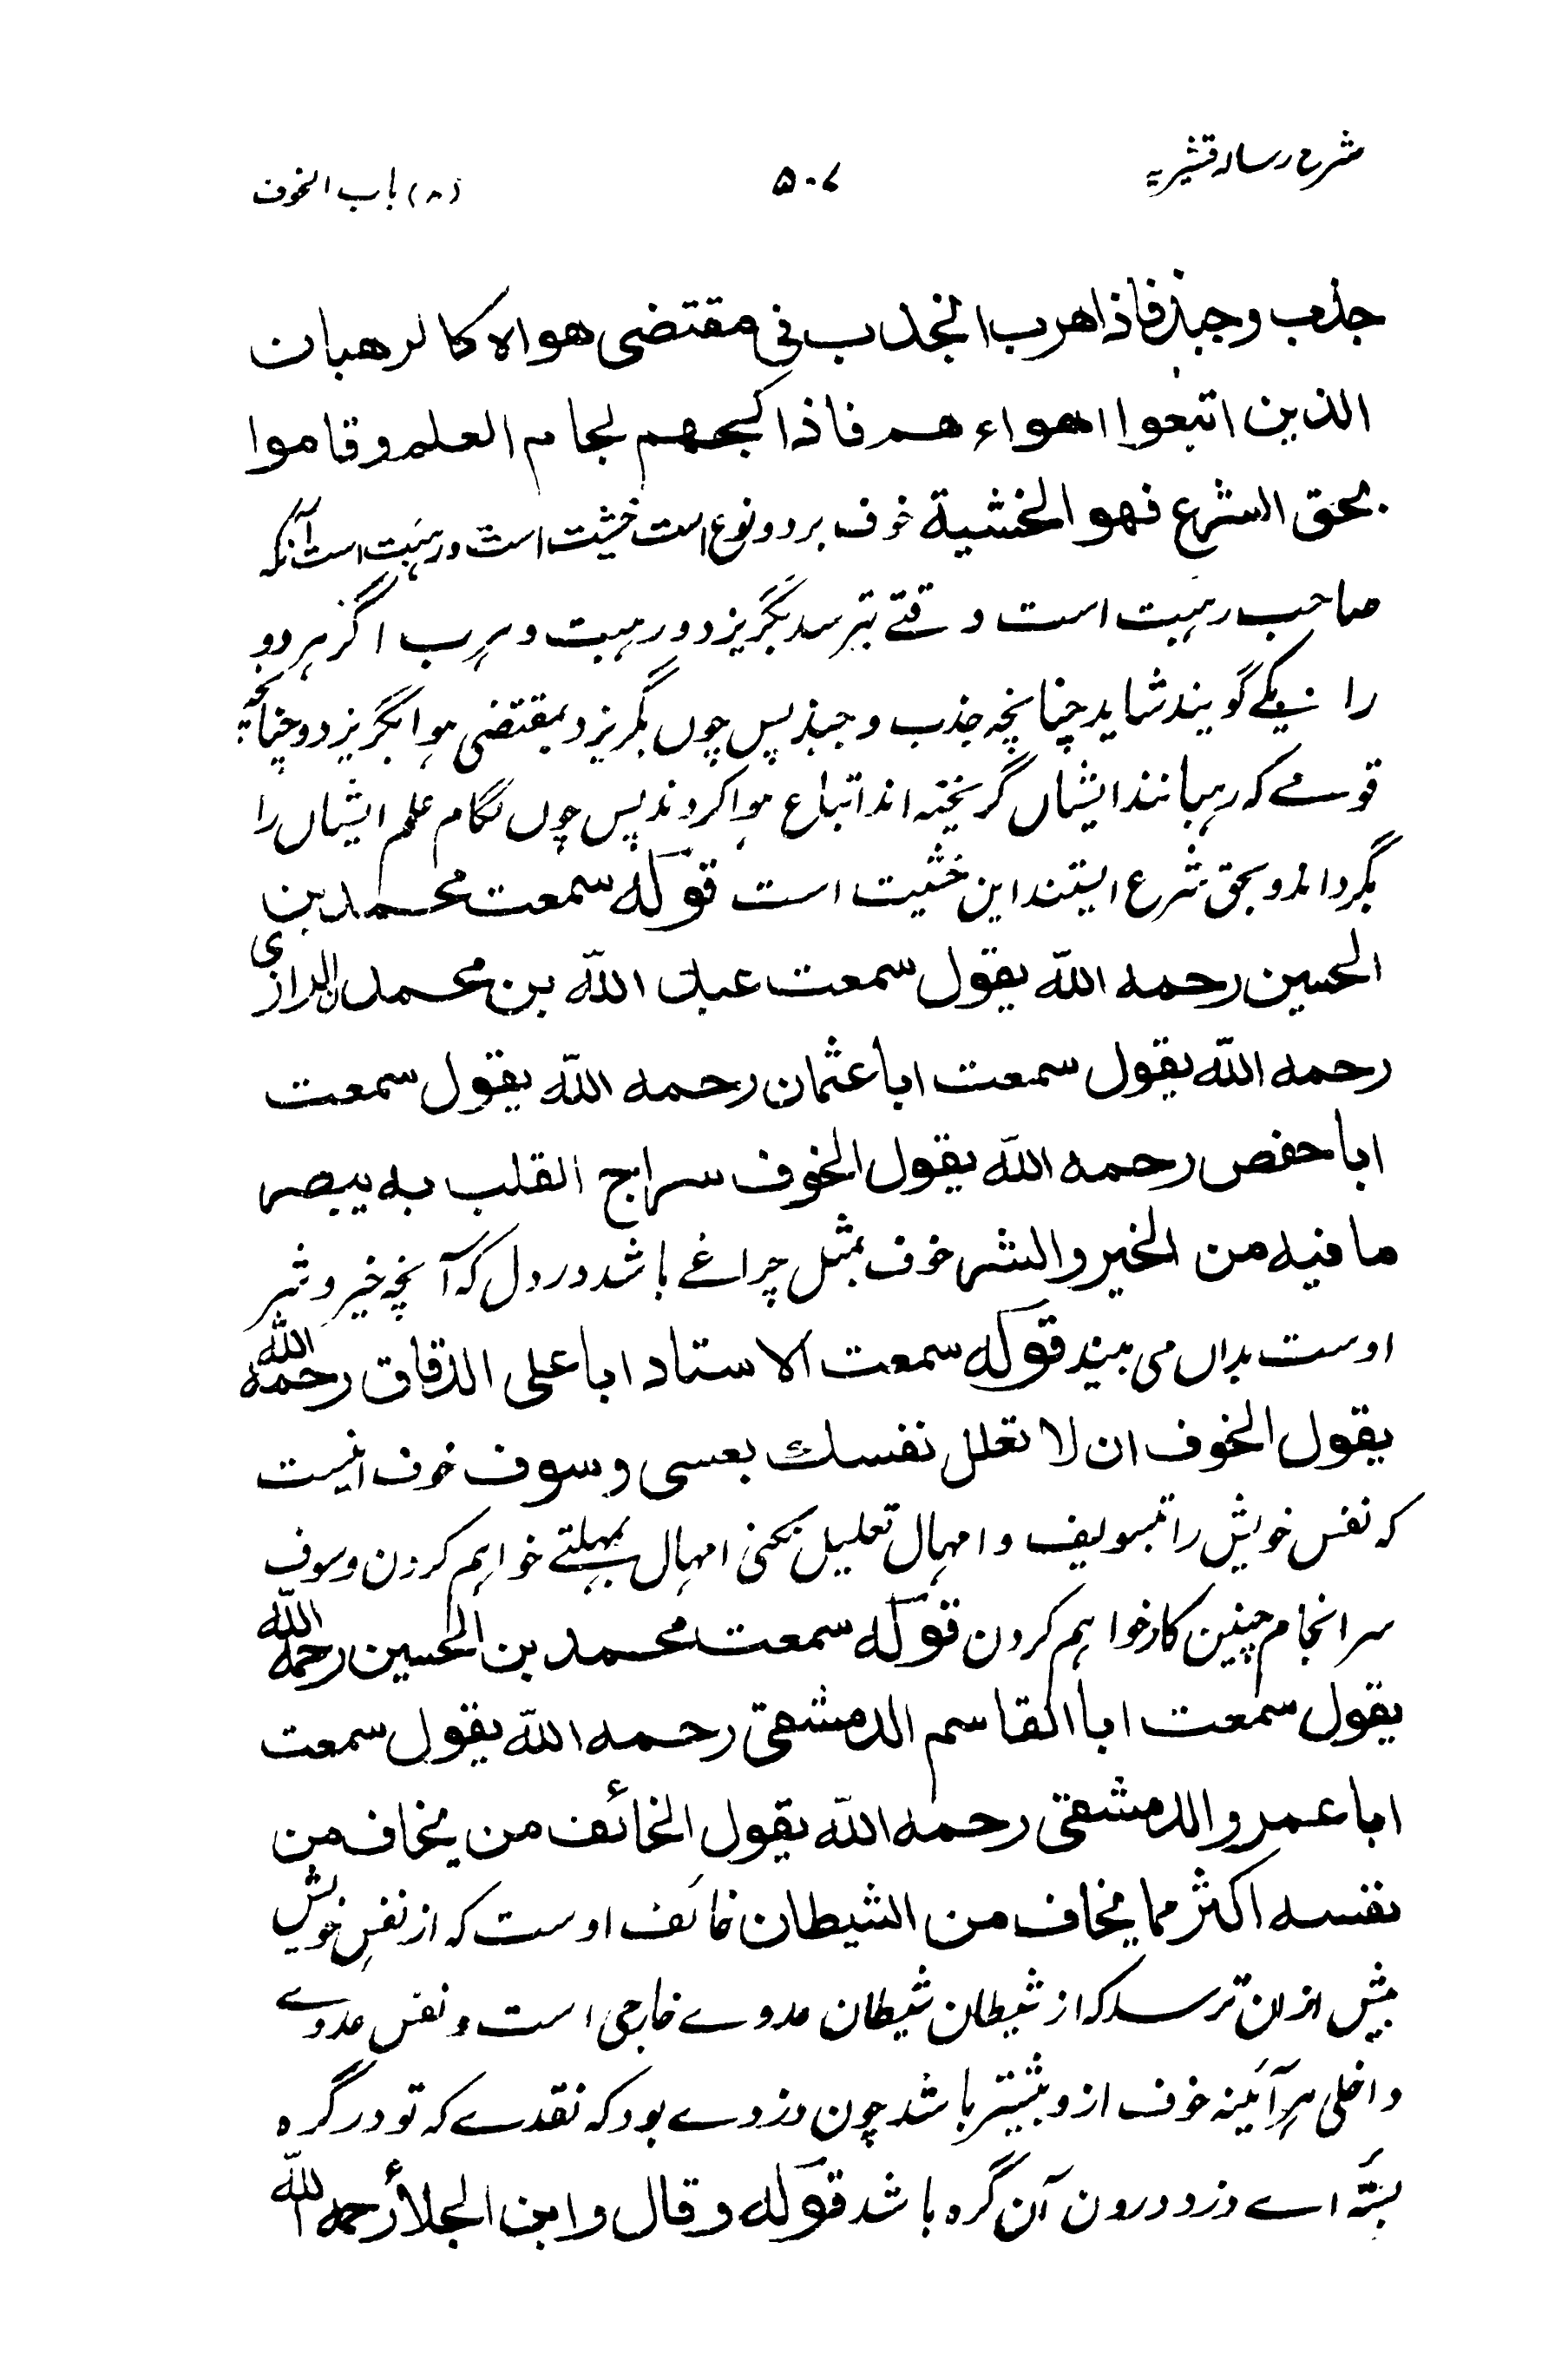 شرح رسالہ قشیریہ
۵۰۷
(۸) باب الخوف
جذب وجبذ فاذا هرب انجذب فی مقتضی هواه کالرهبان
الذین اتبعوا اهواءهم فاذا کبحهم لجام العلم وقاموا
بحق الشرع فهو الخشیة خوف بر دو نوع است خشیت است و رہبت است آنکہ
صاحب رہبت است وقتے بترسد بگریزد و رہبت و ہرب اگر ہر دو
را یکے گویند شاید چنانچہ جذب و جبذ پس چوں بگریزد بمقتضی ہوا بگریزد و چنانچہ
قومے کہ رہبانند ایشاں گریختہ اند اتباع ہوا کردند پس چوں لگام علم ایشاں را
بگرداند و بحق شرع ایستند این خشیت است قوله سمعت محمد بن
الحسین رحمه الله یقول سمعت عبد الله بن محمد الرازی
رحمه الله یقول سمعت ابا عثمان رحمه الله یقول سمعت
ابا حفص رحمه الله یقول الخوف سراج القلب به یبصر
ما فیه من الخیر والشر خوف بمثل چراغے باشد در دل کہ آنچہ خیر و شر
اوست بداں می بیند قوله سمعت الاستاد ابا علی الدقاق رحمه الله
یقول الخوف ان لا تعلل نفسك بعسی وسوف خوف اینست
کہ نفس خویش را بتسویف و امہال تعلیل نکنی امہال بمہلتے خواہم کردن و سوف
سرانجام چنین کار خواہم کردن قوله سمعت محمد بن الحسین رحمه الله
یقول سمعت ابا القاسم الدمشقی رحمه الله یقول سمعت
ابا عمرو الدمشقی رحمه الله یقول الخائف من یخاف من
نفسه اکثر مما یخاف من الشیطان خائف اوست کہ از نفس خویش
بیش ازان ترسد کہ از شیطان شیطان عدوے خارجی است و نفس عدوے
داخلی ہر آئینہ خوف ازو بیشتر باشد چون دزدے بود کہ نقدے کہ تو در گرہ
بستہ اے دزد درون آن گرہ باشد قوله وقال وابن الجلأ رحمه الله